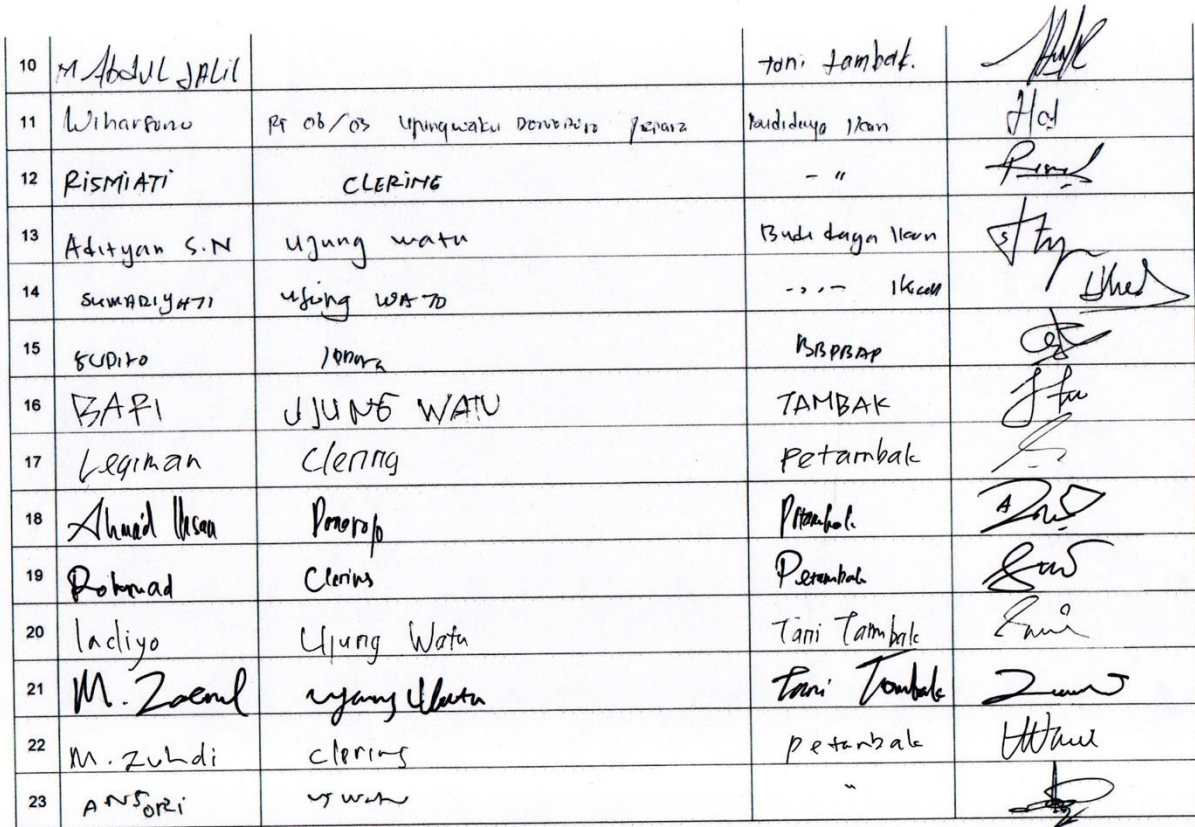 10 M Abdul JALil tani tambak.
11 Wiharsono RT 06/03 Ujungwatu Donorojo Jepara Budidaya Ikan
12 RISMIATI CLERING - "
13 Adityan S.N Ujung watu Budi daya Ikan
14 SUMARIYATI Ujung WATO -,,- Ikan
15 SUDITO Jepara BBPBAP
16 BARI UJUNG WATU TAMBAK
17 Legiman Clering Petambak
18 Ahmad Ihsan Donorojo Petambak
19 Rohmad Clering Petambak
20 ladiyo Ujung Watu Tani Tambak
21 M. Zaenul Ujung Watu Tani Tambak
22 M. Zuhdi Clering petambak
23 ANSORI Uj watu "